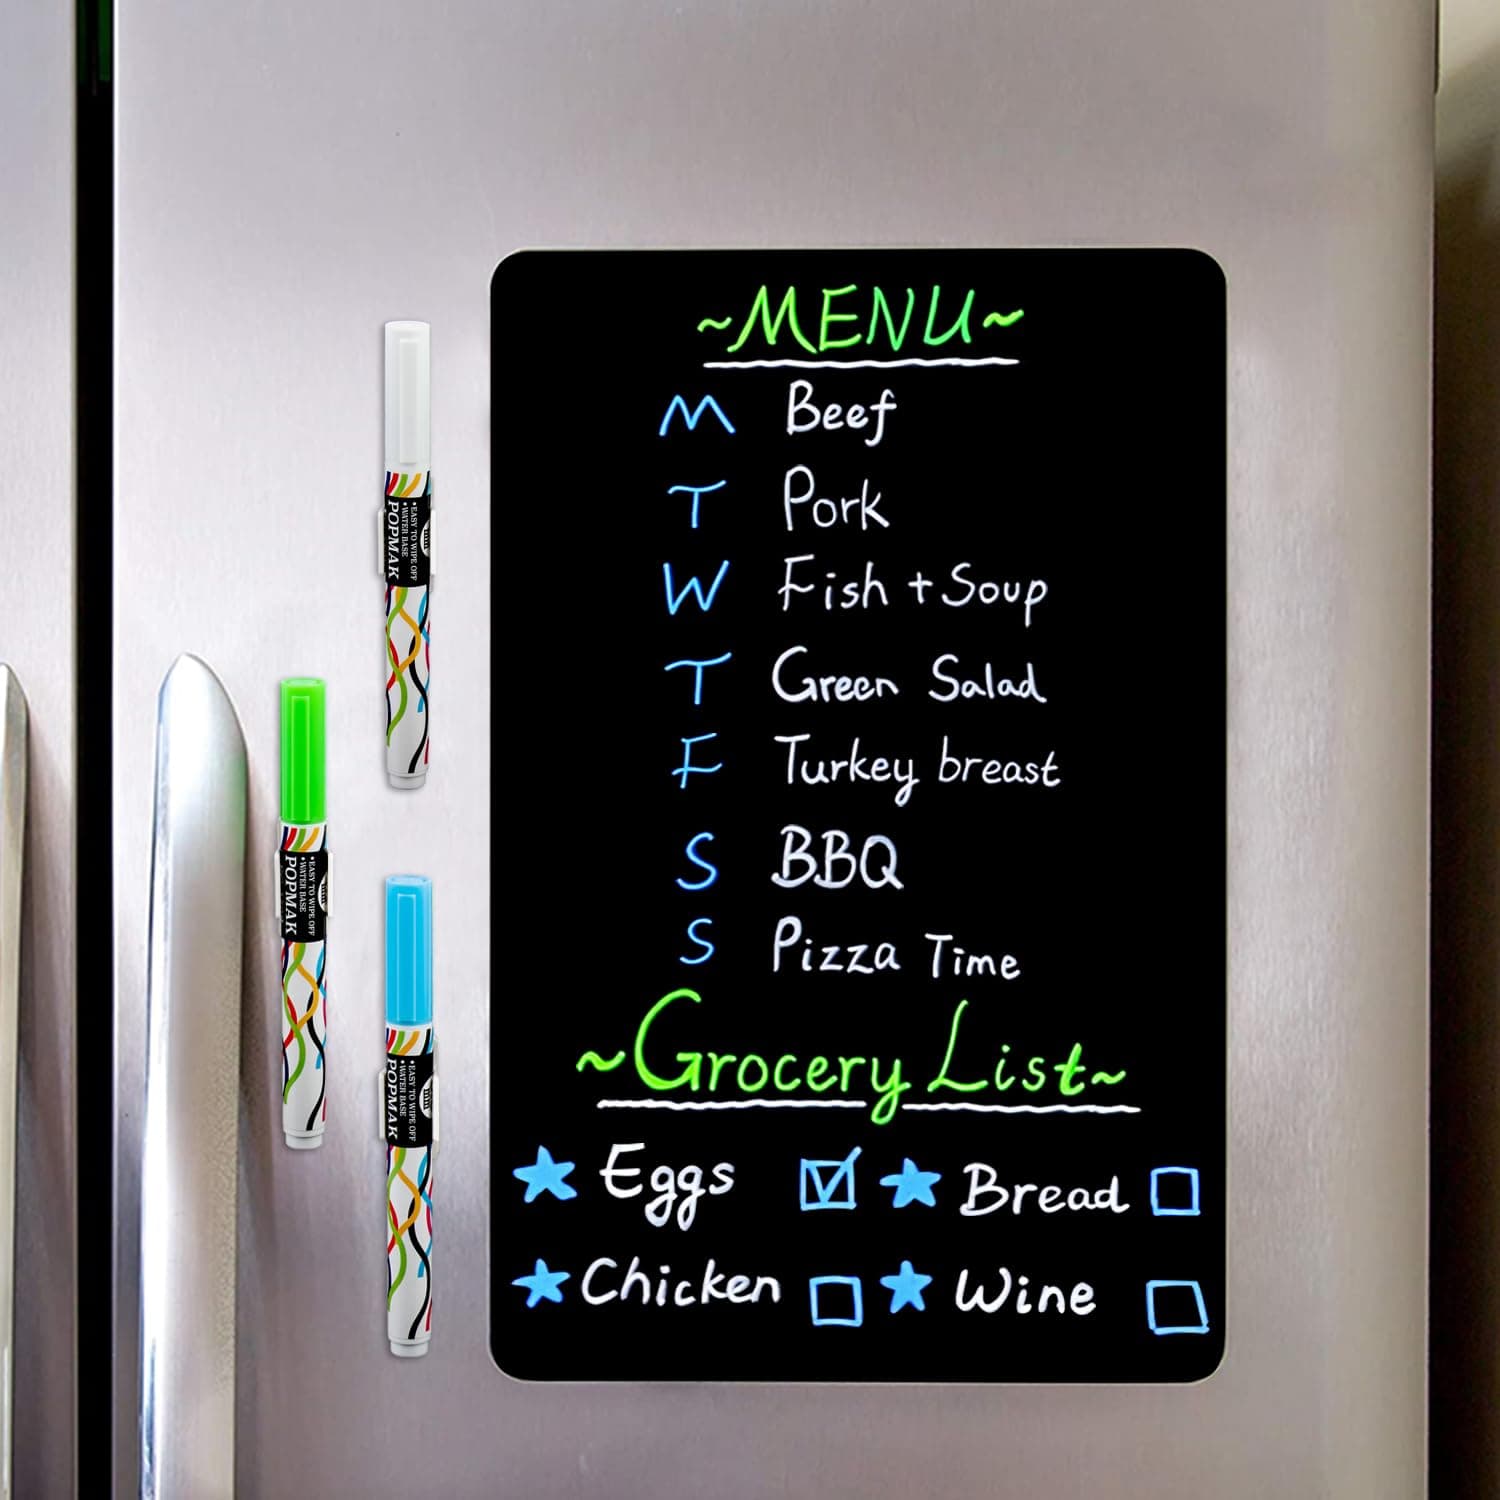 ~MENU~
M Beef
T Pork
W Fish + Soup
T Green Salad
F Turkey breast
S BBQ
S Pizza Time
~Grocery List~
Eggs Bread
Chicken Wine
•EASY TO WIPE OFF
•WATER BASE
POPMAK
•EASY TO WIPE OFF
•WATER BASE
POPMAK
•EASY TO WIPE OFF
•WATER BASE
POPMAK